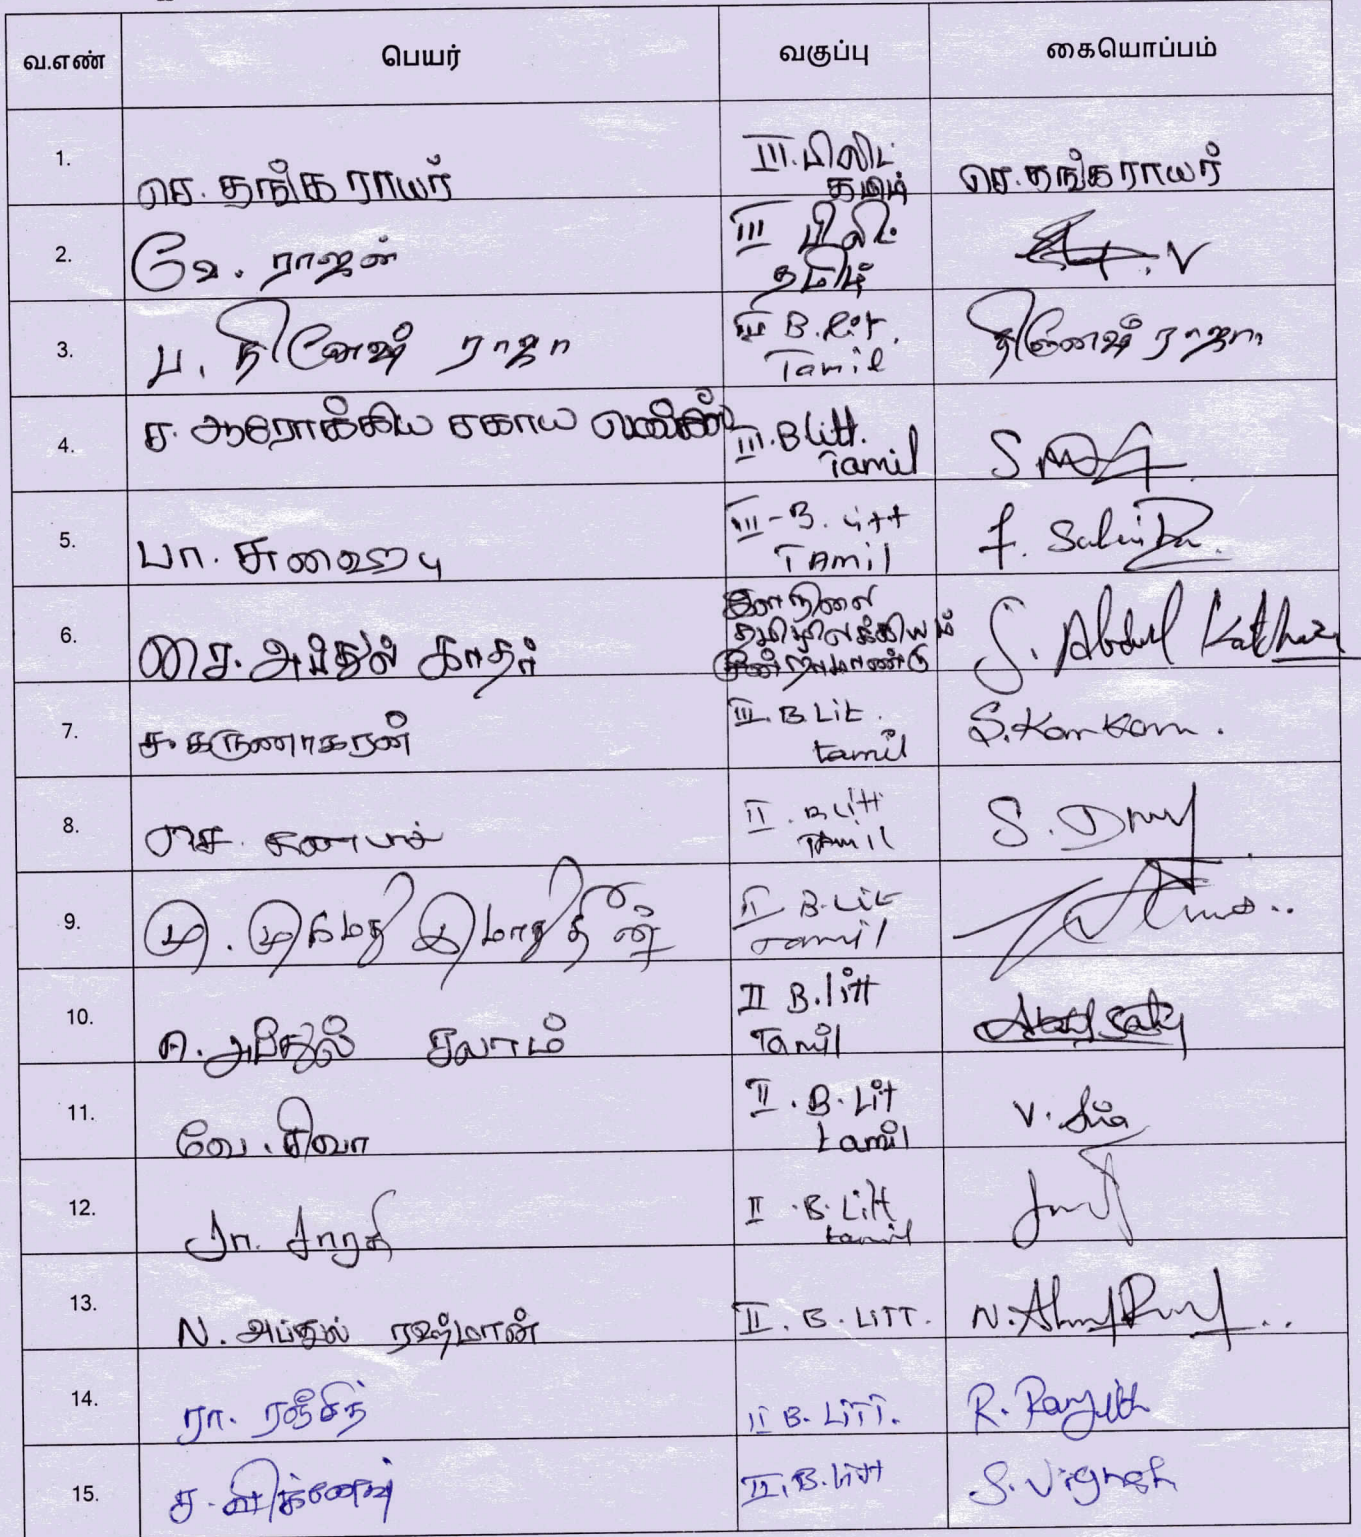 வ.எண் பெயர் வகுப்பு கையொப்பம்
1. செ. தங்க ராயர் III. பிலிட் தமிழ் செ. தங்க ராயர்
2. வே. ராஜன் III பிலிட் தமிழ் V
3. ப. தினேஷ் ராஜா III B.Lit. Tamil தினேஷ் ராஜா
4. ச. ஆரோக்கிய சகாய III. B Litt. Tamil S
5. பா. III - B. Litt TAmil f.
6. சை. அப்துல் காதர் இளநிலை தமிழிலக்கியம் மூன்றாமாண்டு S. Abdul Kathar
7. ச. கருணாகரன் III. B Lit. tamil S.
8. சே. II. B Litt TAmil S.
9. மு. முகமது இமாதுதீன் II B.Lit Tamil
10. அப்துல் சலாம் II B.litt Tamil
11. வே. சிவா II. B. Lit tamil V. Siva
12. சா. சாரதி II. B. Litt tamil
13. N. அப்துல் ரஹ்மான் II. B. LITT. N.
14. ரா. ரஞ்சித் II B. LITT. R. Ranjith
15. ச. விக்னேஷ் II. B. litt S. Vignesh